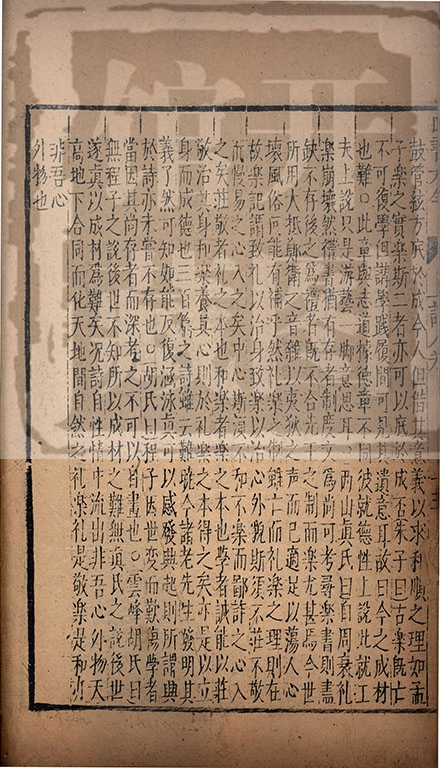 鼓管發方底於成今人但借其意義以求和順之理如孟
子樂之實樂斯二者亦可以底於成否朱子曰古樂既亡
不可復學但講學踐履間可見其遺意耳故曰今之成材
也難○此章與志道據德章不同彼就德性上說此就工
夫上說只是游藝一脚意思耳○西山眞氏曰自周衰礼
樂崩壞然禮書猶有存者制度文爲尚可考尋樂書則盡
缺不存後之爲禮者既不合先王之制而樂尤甚焉今世
所用大抵鄭衛之音雜以夷狄之声而已適足以蕩人心
壞風俗何能有補乎然礼樂之制雖亡而礼樂之理則在
故樂記謂致礼以治身致樂以治心外貌斯須不莊不敬
而慢易之心入之矣中心斯須不和不樂而鄙詐之心入
之矣莊敬者礼之本也和樂者樂之本也學者誠能以莊
敬治其身和樂養其心則於礼樂之本得之矣亦足以立
身而成德也三百篇之詩雖云難曉今諸老先生發明其
義了然可知如能反復涵泳眞可以感發興起則所謂興
於詩亦未嘗不存也○胡氏曰程子因世變而歎傷學者
當因其尚存者而深考之不可以自畫也○雲峰胡氏曰
無程子之說後世不知所以成材之難無眞氏之說後世
遂眞以成材爲難矣况詩自性情中流出非吾心外物天
高地下合同而化天地間自然之礼樂礼是敬樂是和亦
非吾心
外物也